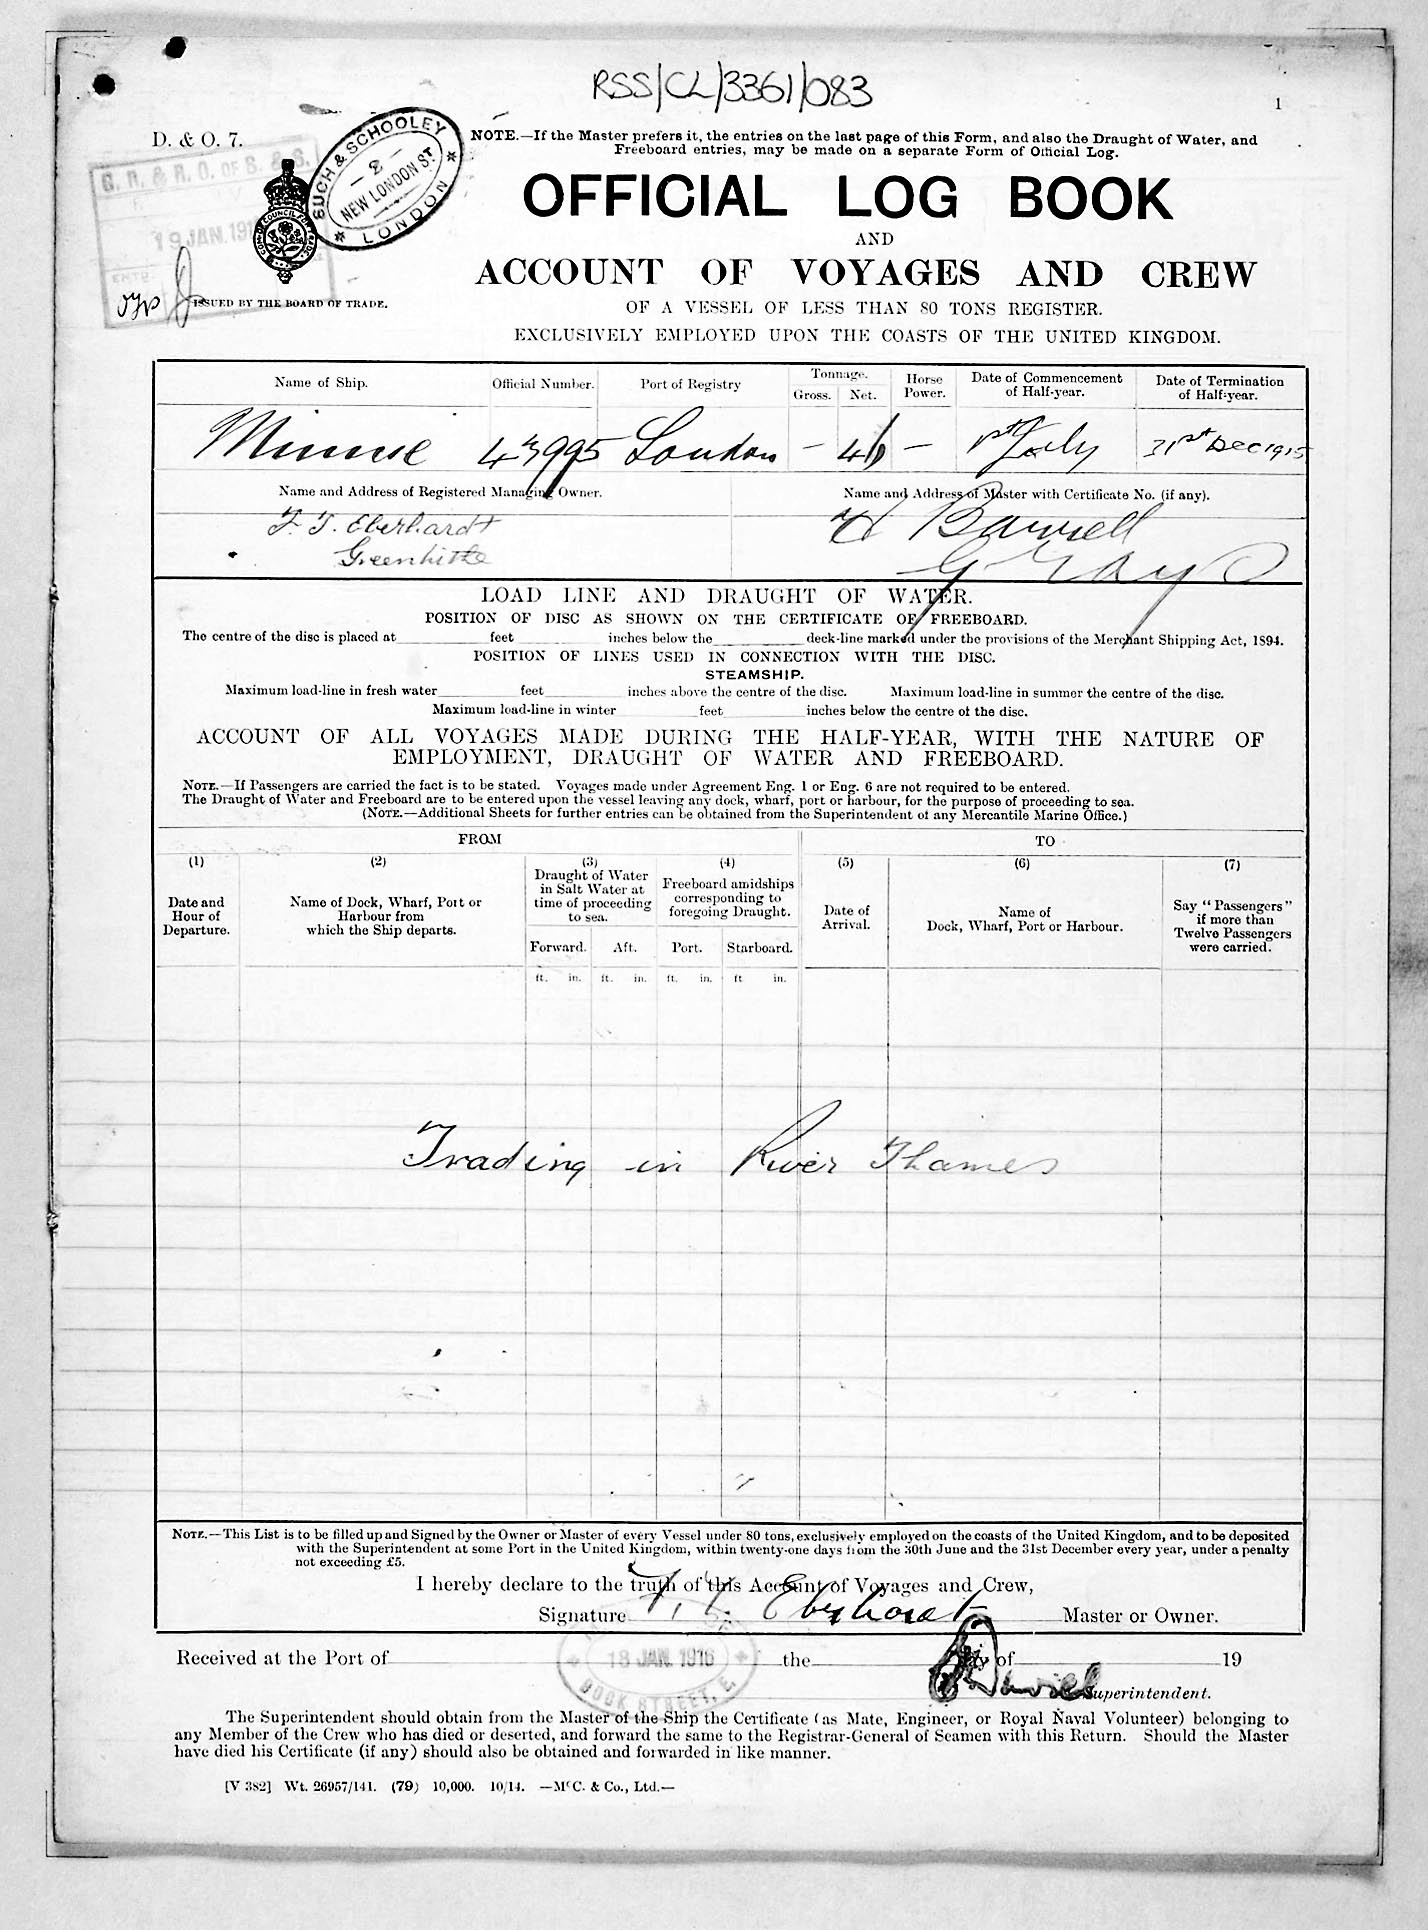 RSS/CL/3361/083
1
D. & O. 7.
G. R. & R. O. OF S. & S.
19 JAN. 191
SUCH & SCHOOLEY
— 2 —
NEW LONDON ST.
LONDON
ISSUED BY THE BOARD OF TRADE.
NOTE.—If the Master prefers it, the entries on the last page of this Form, and also the Draught of Water, and
Freeboard entries, may be made on a separate Form of Official Log.
OFFICIAL LOG BOOK
AND
ACCOUNT OF VOYAGES AND CREW
OF A VESSEL OF LESS THAN 80 TONS REGISTER.
EXCLUSIVELY EMPLOYED UPON THE COASTS OF THE UNITED KINGDOM.
Name of Ship. Official Number. Port of Registry Tonnage. Gross. Net. Horse Power. Date of Commencement of Half-year. Date of Termination of Half-year.
Minnie 43995 London – 46 – 1st July 31st Dec 1915
Name and Address of Registered Managing Owner. Name and Address of Master with Certificate No. (if any).
F. T. Eberhardt
Greenhithe
H Barrell
Grays
LOAD LINE AND DRAUGHT OF WATER.
POSITION OF DISC AS SHOWN ON THE CERTIFICATE OF FREEBOARD.
The centre of the disc is placed at feet inches below the deck-line marked under the provisions of the Merchant Shipping Act, 1894.
POSITION OF LINES USED IN CONNECTION WITH THE DISC.
STEAMSHIP.
Maximum load-line in fresh water feet inches above the centre of the disc. Maximum load-line in summer the centre of the disc.
Maximum load-line in winter feet inches below the centre of the disc.
ACCOUNT OF ALL VOYAGES MADE DURING THE HALF-YEAR, WITH THE NATURE OF
EMPLOYMENT, DRAUGHT OF WATER AND FREEBOARD.
NOTE.—If Passengers are carried the fact is to be stated. Voyages made under Agreement Eng. 1 or Eng. 6 are not required to be entered.
The Draught of Water and Freeboard are to be entered upon the vessel leaving any dock, wharf, port or harbour, for the purpose of proceeding to sea.
(NOTE.—Additional Sheets for further entries can be obtained from the Superintendent of any Mercantile Marine Office.)
FROM TO
(1) (2) (3) (4) (5) (6) (7)
Date and Hour of Departure.
Name of Dock, Wharf, Port or Harbour from which the Ship departs.
Draught of Water in Salt Water at time of proceeding to sea.
Freeboard amidships corresponding to foregoing Draught.
Date of Arrival.
Name of Dock, Wharf, Port or Harbour.
Say "Passengers" if more than Twelve Passengers were carried.
Forward. Aft. Port. Starboard.
ft. in. ft. in. ft. in. ft in.
Trading in River Thames
NOTE.—This List is to be filled up and Signed by the Owner or Master of every Vessel under 80 tons, exclusively employed on the coasts of the United Kingdom, and to be deposited
with the Superintendent at some Port in the United Kingdom, within twenty-one days from the 30th June and the 31st December every year, under a penalty
not exceeding £5.
I hereby declare to the truth of this Account of Voyages and Crew,
Signature F. T. Eberhardt Master or Owner.
Received at the Port of the day of 19
18 JAN. 1916
DOCK STREET, E.
Superintendent.
The Superintendent should obtain from the Master of the Ship the Certificate (as Mate, Engineer, or Royal Naval Volunteer) belonging to
any Member of the Crew who has died or deserted, and forward the same to the Registrar-General of Seamen with this Return. Should the Master
have died his Certificate (if any) should also be obtained and forwarded in like manner.
[V 382] Wt. 26957/141. (79) 10,000. 10/14. —McC. & Co., Ltd.—